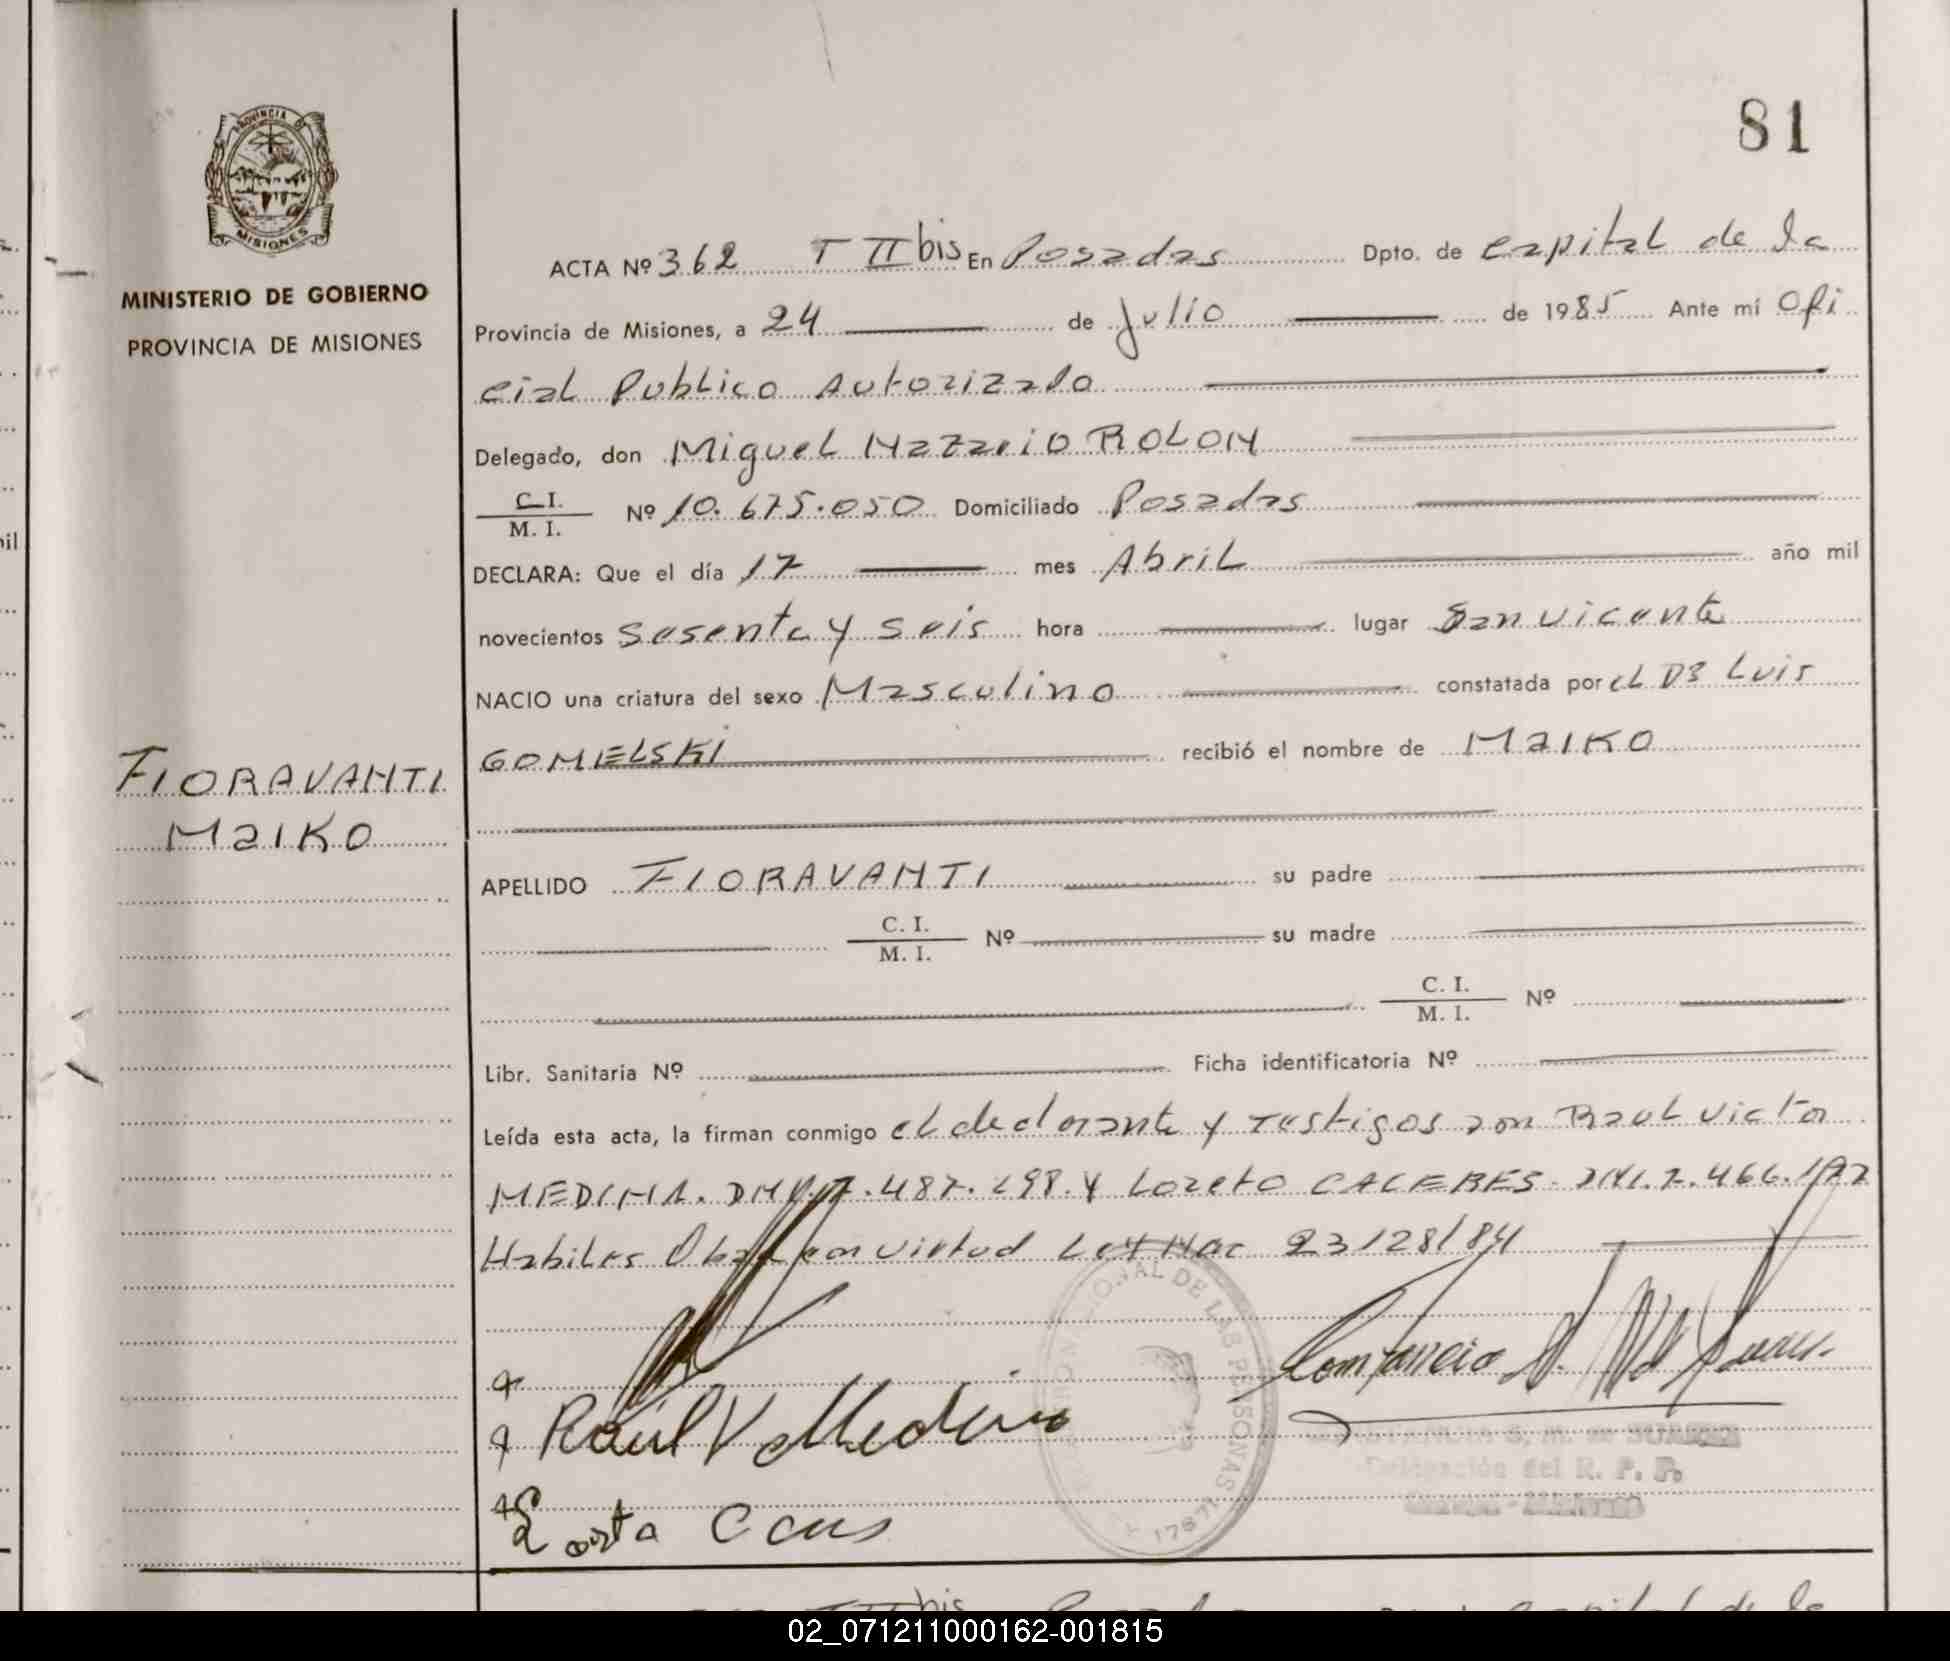 81
PROVINCIA DE
MISIONES
MINISTERIO DE GOBIERNO
PROVINCIA DE MISIONES
FIORAVANTI
MaIKO
ACTA Nº 362 T II bis En Posadas Dpto. de capital de la
Provincia de Misiones, a 24 de Julio de 1985 Ante mí Ofi
cial Publico Autorizado
Delegado, don Miguel Nazario ROLON
C.I. / M. I. Nº 10.675.050 Domiciliado Posadas
DECLARA: Que el día 17 mes Abril año mil
novecientos sesenta y seis hora lugar San Vicente
NACIO una criatura del sexo Masculino constatada por el DR Luis
GOMELSKI recibió el nombre de MaIKO
APELLIDO FIORAVANTI su padre
C. I. / M. I. Nº su madre
C. I. / M. I. Nº
Libr. Sanitaria Nº Ficha identificatoria Nº
Leída esta acta, la firman conmigo el declarante y Testigos son Raul Victor
MEDINA. DNI. 7.487.298. Y Loreto CACERES. DNI. 7.466.
Habiles Obra en virtud Ley Nac 23128/84
Raúl V. Medina
NACIONAL DE LAS PERSONAS
1787
DE SUAREZ
Delegación del R. P. P.
Misiones
II bis
02_071211000162-001815